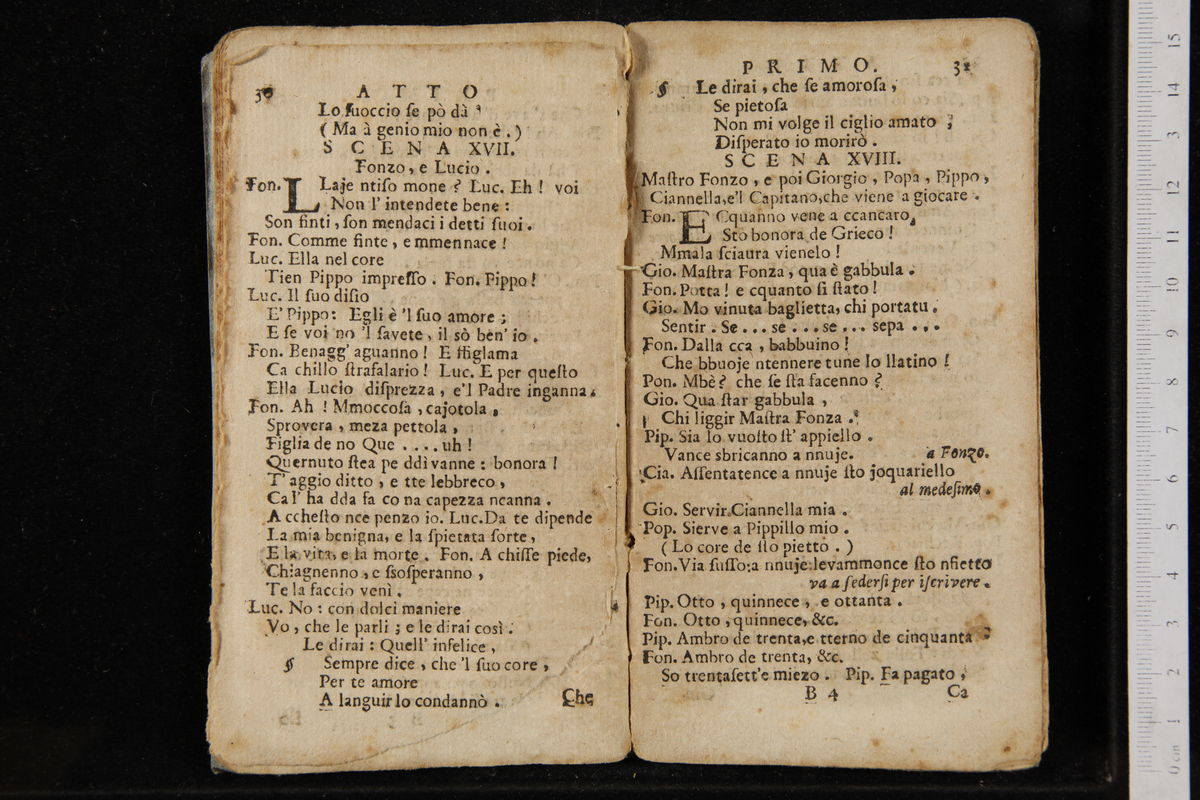 30 ATTO
Lo ſuoccio ſe pò dà
( Ma à genio mio non è . )
SCENA XVII.
Fonzo, e Lucio .
Fon. LLaje ntiſo mone ? Luc. Eh ! voi
Non l' intendete bene :
Son finti , ſon mendaci i detti ſuoi .
Fon. Comme finte , e mmennace !
Luc. Ella nel core
Tien Pippo impreſſo . Fon. Pippo !
Luc. Il ſuo diſio
E' Pippo : Egli è 'l ſuo amore ;
E ſe voi no 'l ſavete , il sò ben' io .
Fon. Benagg' aguanno ! E ffiglama
Ca chillo ſtrafalario ! Luc. E per queſto
Ella Lucio diſprezza , e'l Padre inganna .
Fon. Ah ! Mmoccoſa , cajotola ,
Sprovera , meza pettola ,
Figlia de no Que . . . . uh !
Quernuto ſtea pe ddì vanne : bonora !
T' aggio ditto , e tte lebbreco ,
Ca l' ha dda fa co na capezza ncanna .
A ccheſto nce penzo io. Luc. Da te dipende
La mia benigna, e la ſpietata ſorte ,
E la vita, e la morte . Fon. A chiſſe piede,
Chiagnenno , e ſsoſperanno ,
Te la faccio venì .
Luc. No : con dolci maniere
Vo , che le parli ; e le dirai così :
Le dirai : Quell' infelice ,
§ Sempre dice , che 'l ſuo core ,
Per te amore
A languir lo condannò .
Che
PRIMO. 31
§ Le dirai , che ſe amoroſa ,
Se pietoſa
Non mi volge il ciglio amato ,
Diſperato io morirò .
SCENA XVIII.
Maſtro Fonzo , e poi Giorgio , Popa , Pippo ,
Ciannella, e'l Capitano, che viene a giocare .
Fon. ECquanno vene a ccancaro
Sto bonora de Grieco !
Mmala ſciaura vienelo !
Gio. Maſtra Fonza , qua è gabbula .
Fon. Potta ! e cquanto ſi ſtato !
Gio. Mo vinuta baglietta, chi portatu .
Sentir . Se . . . se . . . se . . . sepa . . .
Fon. Dalla cca , babbuino !
Che bbuoje ntennere tune lo llatino !
Pon. Mbè ? che ſe ſta facenno ?
Gio. Qua ſtar gabbula ,
Chi liggir Maſtra Fonza .
Pip. Sia lo vuoſto ſt' appiello .
Vance sbricanno a nnuje. a Fonzo.
Cia. Aſſentatence a nnuje ſto joquariello
al medeſimo .
Gio. Servir Ciannella mia .
Pop. Sierve a Pippillo mio .
( Lo core de ſto pietto . )
Fon. Via ſuſſo; a nnuje levammonce ſto nfietto
va a ſederſi per iſcrivere .
Pip. Otto , quinnece , e ottanta .
Fon. Otto , quinnece, &c.
Pip. Ambro de trenta, e tterno de cinquanta
Fon. Ambro de trenta, &c.
So trentaſett'e miezo . Pip. Fa pagato ,
B 4 Ca